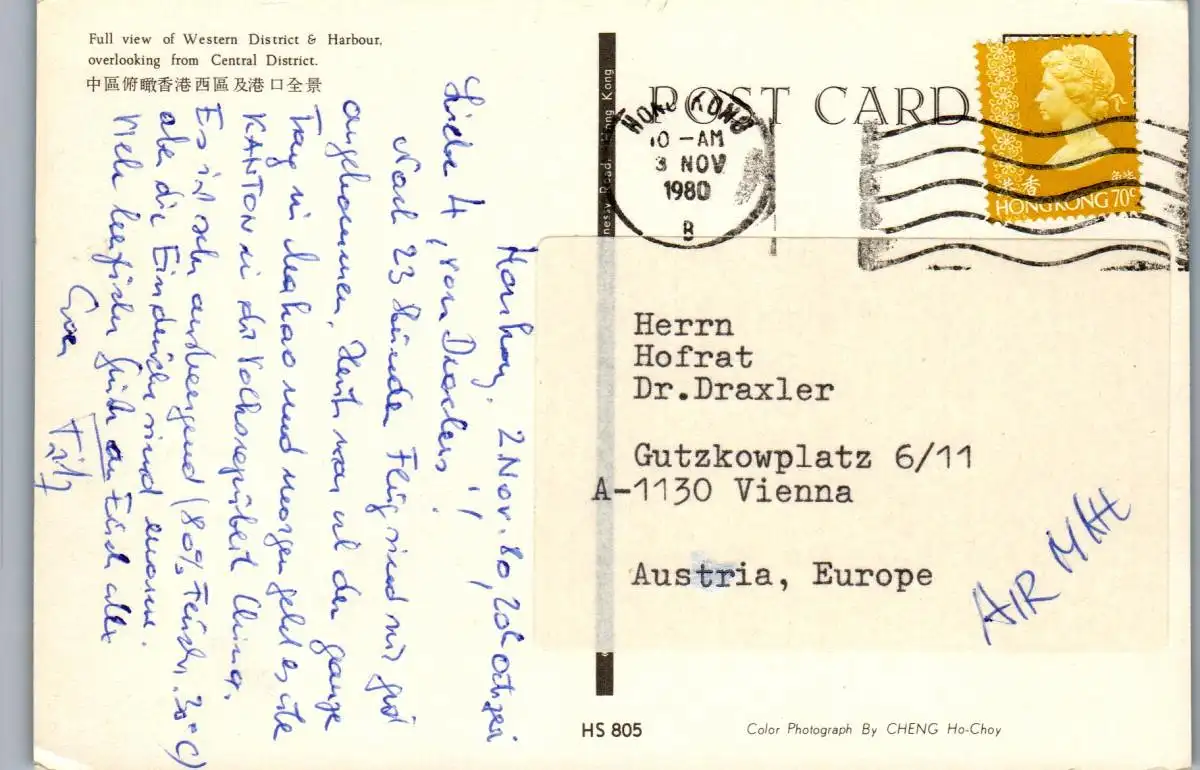 Full view of Western District & Harbour,
overlooking from Central District.
中區俯瞰香港西區及港口全景
POST CARD
HONG KONG
10 -AM
3 NOV
1980
B
香港
HONG KONG 70c
nessy Road, Hong Kong
2 Nov. 80,
Liebe 4,
Nach 23 Stunden Flug sind wir gut
angekommen. Heute war ich den ganzen
Tag in Makao und morgen geht es
KANTON in die Volksrepublik China.
Es ist sehr anstrengend (80% Feucht. 30°C)
die Eindrücke sind enorm.
Euch alle
Euer
Herrn
Hofrat
Dr.Draxler
Gutzkowplatz 6/11
A-1130 Vienna
Austria, Europe
AIR MAIL
HS 805
Color Photograph By CHENG Ho-Choy